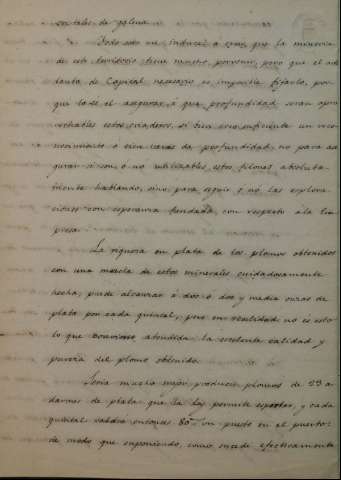 cristales de galena.
Todo esto me induce á creer que la minería
de este territorio tiene mucho porvenir, pero que el ade
lanto de Capital necesario es imposible fijarlo, por
que lo es el asegurar á que profundidad seran apro
vechables estos criaderos, si bien creo suficiente un reco
nocimiento á cien varas de profundidad, no para ase
gurar si son ó no utilizables estos filones absoluta
mente hablando, sino para seguir ó nó las explora
ciones con esperanza fundada, con respecto á la Em
presa.
La riqueza en plata de los plomos obtenidos
con una mezcla de estos minerales cuidadosamente
hecha, puede alcanzar á dos ó dos y media onzas de
plata por cada quintal, pero en realidad no es esto
lo que conviene, atendida la escelente calidad y
pureza del plomo obtenido.
Sería mucho mejor producir plomos de
adarmes de plata que la ley permite esportar, y cada
quintal valdria entonces 80 rs. vn. puesto en el puerto
de modo que suponiendo, como sucede efectivamente